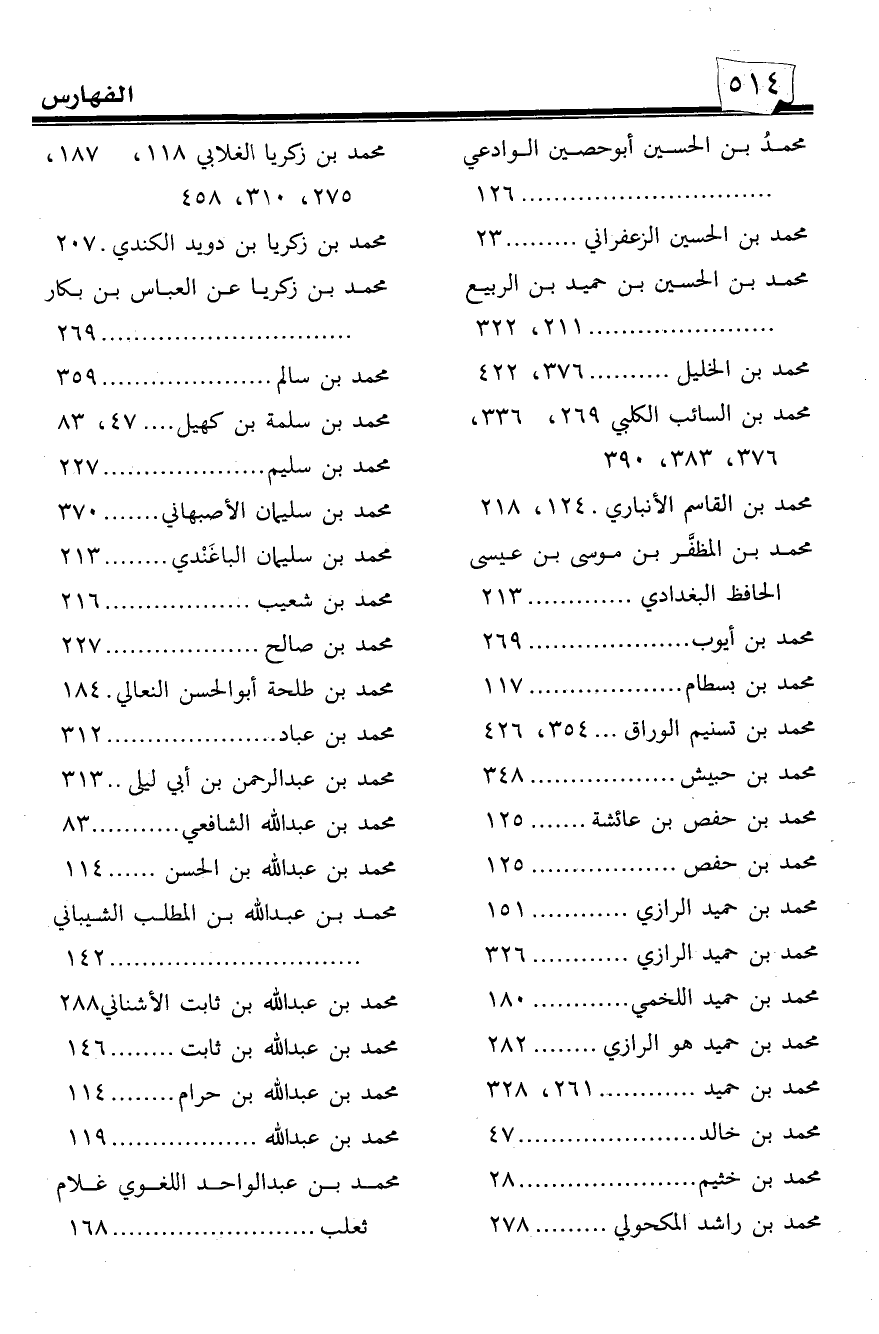 ٥١٤
الفهارس
محمدُ بـن الحسين أبوحصين الـوادعي
.............................. ١٢٦
محمد بن الحسين الزعفراني .........٢٣
محمـد بـن الحسين بـن حميد بـن الربيع
.......................٢١١، ٣٢٢
محمد بن الخليل ..........٣٧٦، ٤٢٢
محمد بن السائب الكلبي ٢٦٩، ٣٣٦،
٣٧٦، ٣٨٣، ٣٩٠
محمد بن القاسم الأنباري .١٢٤، ٢١٨
محمـد بـن المظفَّر بـن موسى بـن عيسى
الحافظ البغدادي ............. ٢١٣
محمد بن أيوب.................... ٢٦٩
محمد بن بسطام................... ١١٧
محمد بن تسنيم الوراق ...٣٥٤، ٤٢٦
محمد بن حبيش.................. ٣٤٨
محمد بن حفص بن عائشة ....... ١٢٥
محمد بن حفص .................. ١٢٥
محمد بن حميد الرازي ............ ١٥١
محمد بن حميد الرازي ............ ٣٢٦
محمد بن حميد اللخمي............ ١٨٠
محمد بن حميد هو الرازي ........ ٢٨٢
محمد بن حميد ............٢٦١، ٣٢٨
محمد بن خالد......................٤٧
محمد بن خثيم......................٢٨
محمد بن راشد المكحولي ......... ٢٧٨
محمد بن زكريا الغلابي ١١٨، ١٨٧،
٢٧٥، ٣١٠، ٤٥٨
محمد بن زكريا بن دويد الكندي .٢٠٧
محمـد بـن زكريـا عـن العبـاس بـن بكـار
.............................. ٢٦٩
محمد بن سالم..................... ٣٥٩
محمد بن سلمة بن كهيل....٤٧، ٨٣
محمد بن سليم.................... ٢٢٧
محمد بن سليمان الأصبهاني....... ٣٧٠
محمد بن سليمان الباغَنْدي........ ٢١٣
محمد بن شعيب .................. ٢١٦
محمد بن صالح ................... ٢٢٧
محمد بن طلحة أبوالحسن النعالي. ١٨٤
محمد بن عباد..................... ٣١٢
محمد بن عبدالرحمن بن أبي ليلى .. ٣١٣
محمد بن عبدالله الشافعي...........٨٣
محمد بن عبدالله بن الحسن ...... ١١٤
محمـد بـن عبـدالله بـن المطلـب الشيبـاني
.............................. ١٤٢
محمد بن عبدالله بن ثابت الأشناني٢٨٨
محمد بن عبدالله بن ثابت ........ ١٤٦
محمد بن عبدالله بن حرام........ ١١٤
محمد بن عبدالله .................. ١١٩
محمـد بـن عبدالواحـد اللغـوي غـلام
ثعلب ......................... ١٦٨